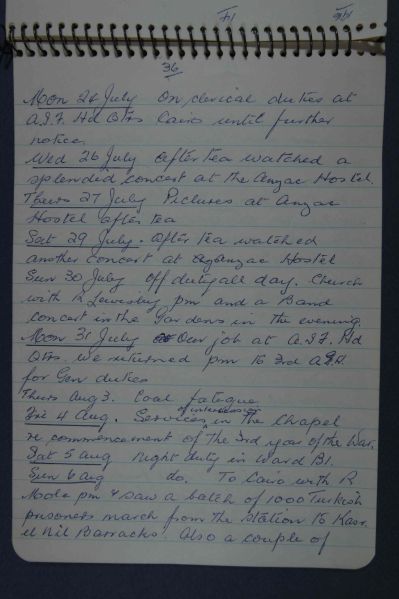 36
Mon 24 July On clerical duties at
A.I.F. Hd Qtrs Cairo until further
notice.
Wed 26 July After tea watched a
splendid concert at the Anzac Hostel.
Thurs 27 July Pictures at Anzac
Hostel after tea
Sat 29 July. After tea watched
another concert at Anzac Hostel
Sun 30 July Off duty all day. Church
with R pm and a Band
concert in the Gardens in the evening.
Mon 31 July Our job at A.I.F. Hd
Qtrs. we returned pm to 3rd A.G.H
for Gen duties
Thurs Aug 3. Coal fatigue
Fri 4 Aug. Services of intercession in the Chapel
re commencement of the 3rd year of the War.
Sat 5 Aug night duty in Ward B1.
Sun 6 Aug do. To Cairo with R
pm & saw a batch of 1000 Turkish
prisoners march from the station to Kasr
el Nil Barracks. Also a couple of